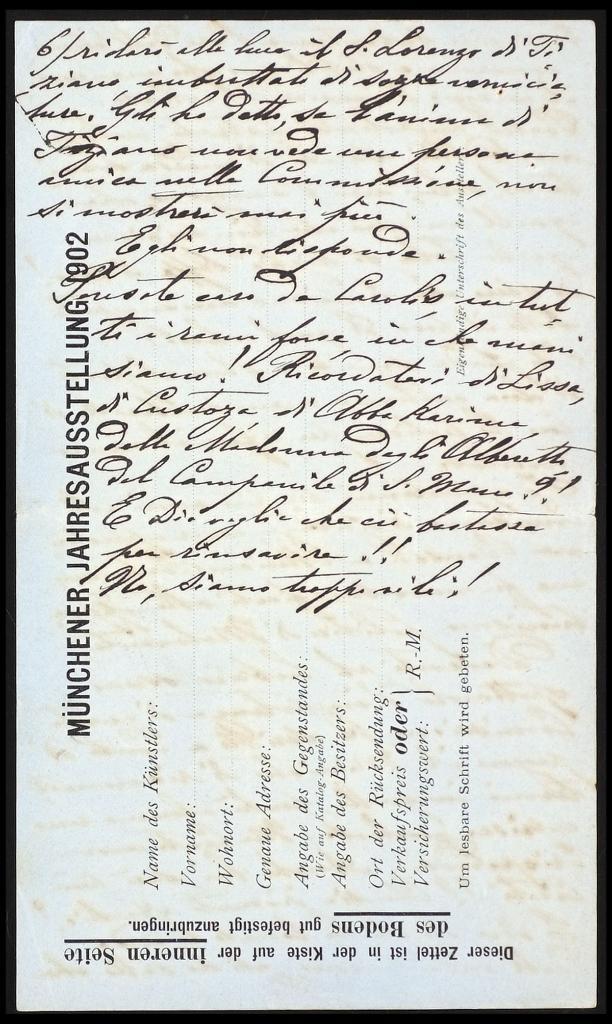 6) ridare alla luce il S. Lorenzo di Ti
ziano imbrattato di sozza vernicia
ture. Gli ho detto, se l'anima di
Tiziano non vede una persona
amica nella Commissione, non
si mostrerà mai più.
Egli non risponde.
caro De Carolis in tut
ti i rami forse in che mani
siamo! Ricordatevi di Lissa,
di Custoza, di Abba Karima,
della Madonna degli Alberetti
del Campanile di S. Marco!!
E Dio voglia che ciò bastasse
per rinsavire!!
No, siamo troppo vili!
MÜNCHENER JAHRESAUSSTELLUNG 1902
Name des Künstlers:
Vorname:
Wohnort:
Genaue Adresse:
Angabe des Gegenstandes:
(Wie auf Katalog-Angabe)
Angabe des Besitzers:
Ort der Rücksendung:
Verkaufspreis oder
Versicherungswert: } R.-M.
Um lesbare Schrift wird gebeten.
Eigenhändige Unterschrift des Ausstellers
Dieser Zettel ist in der Kiste auf der inneren Seite
des Bodens gut befestigt anzubringen.